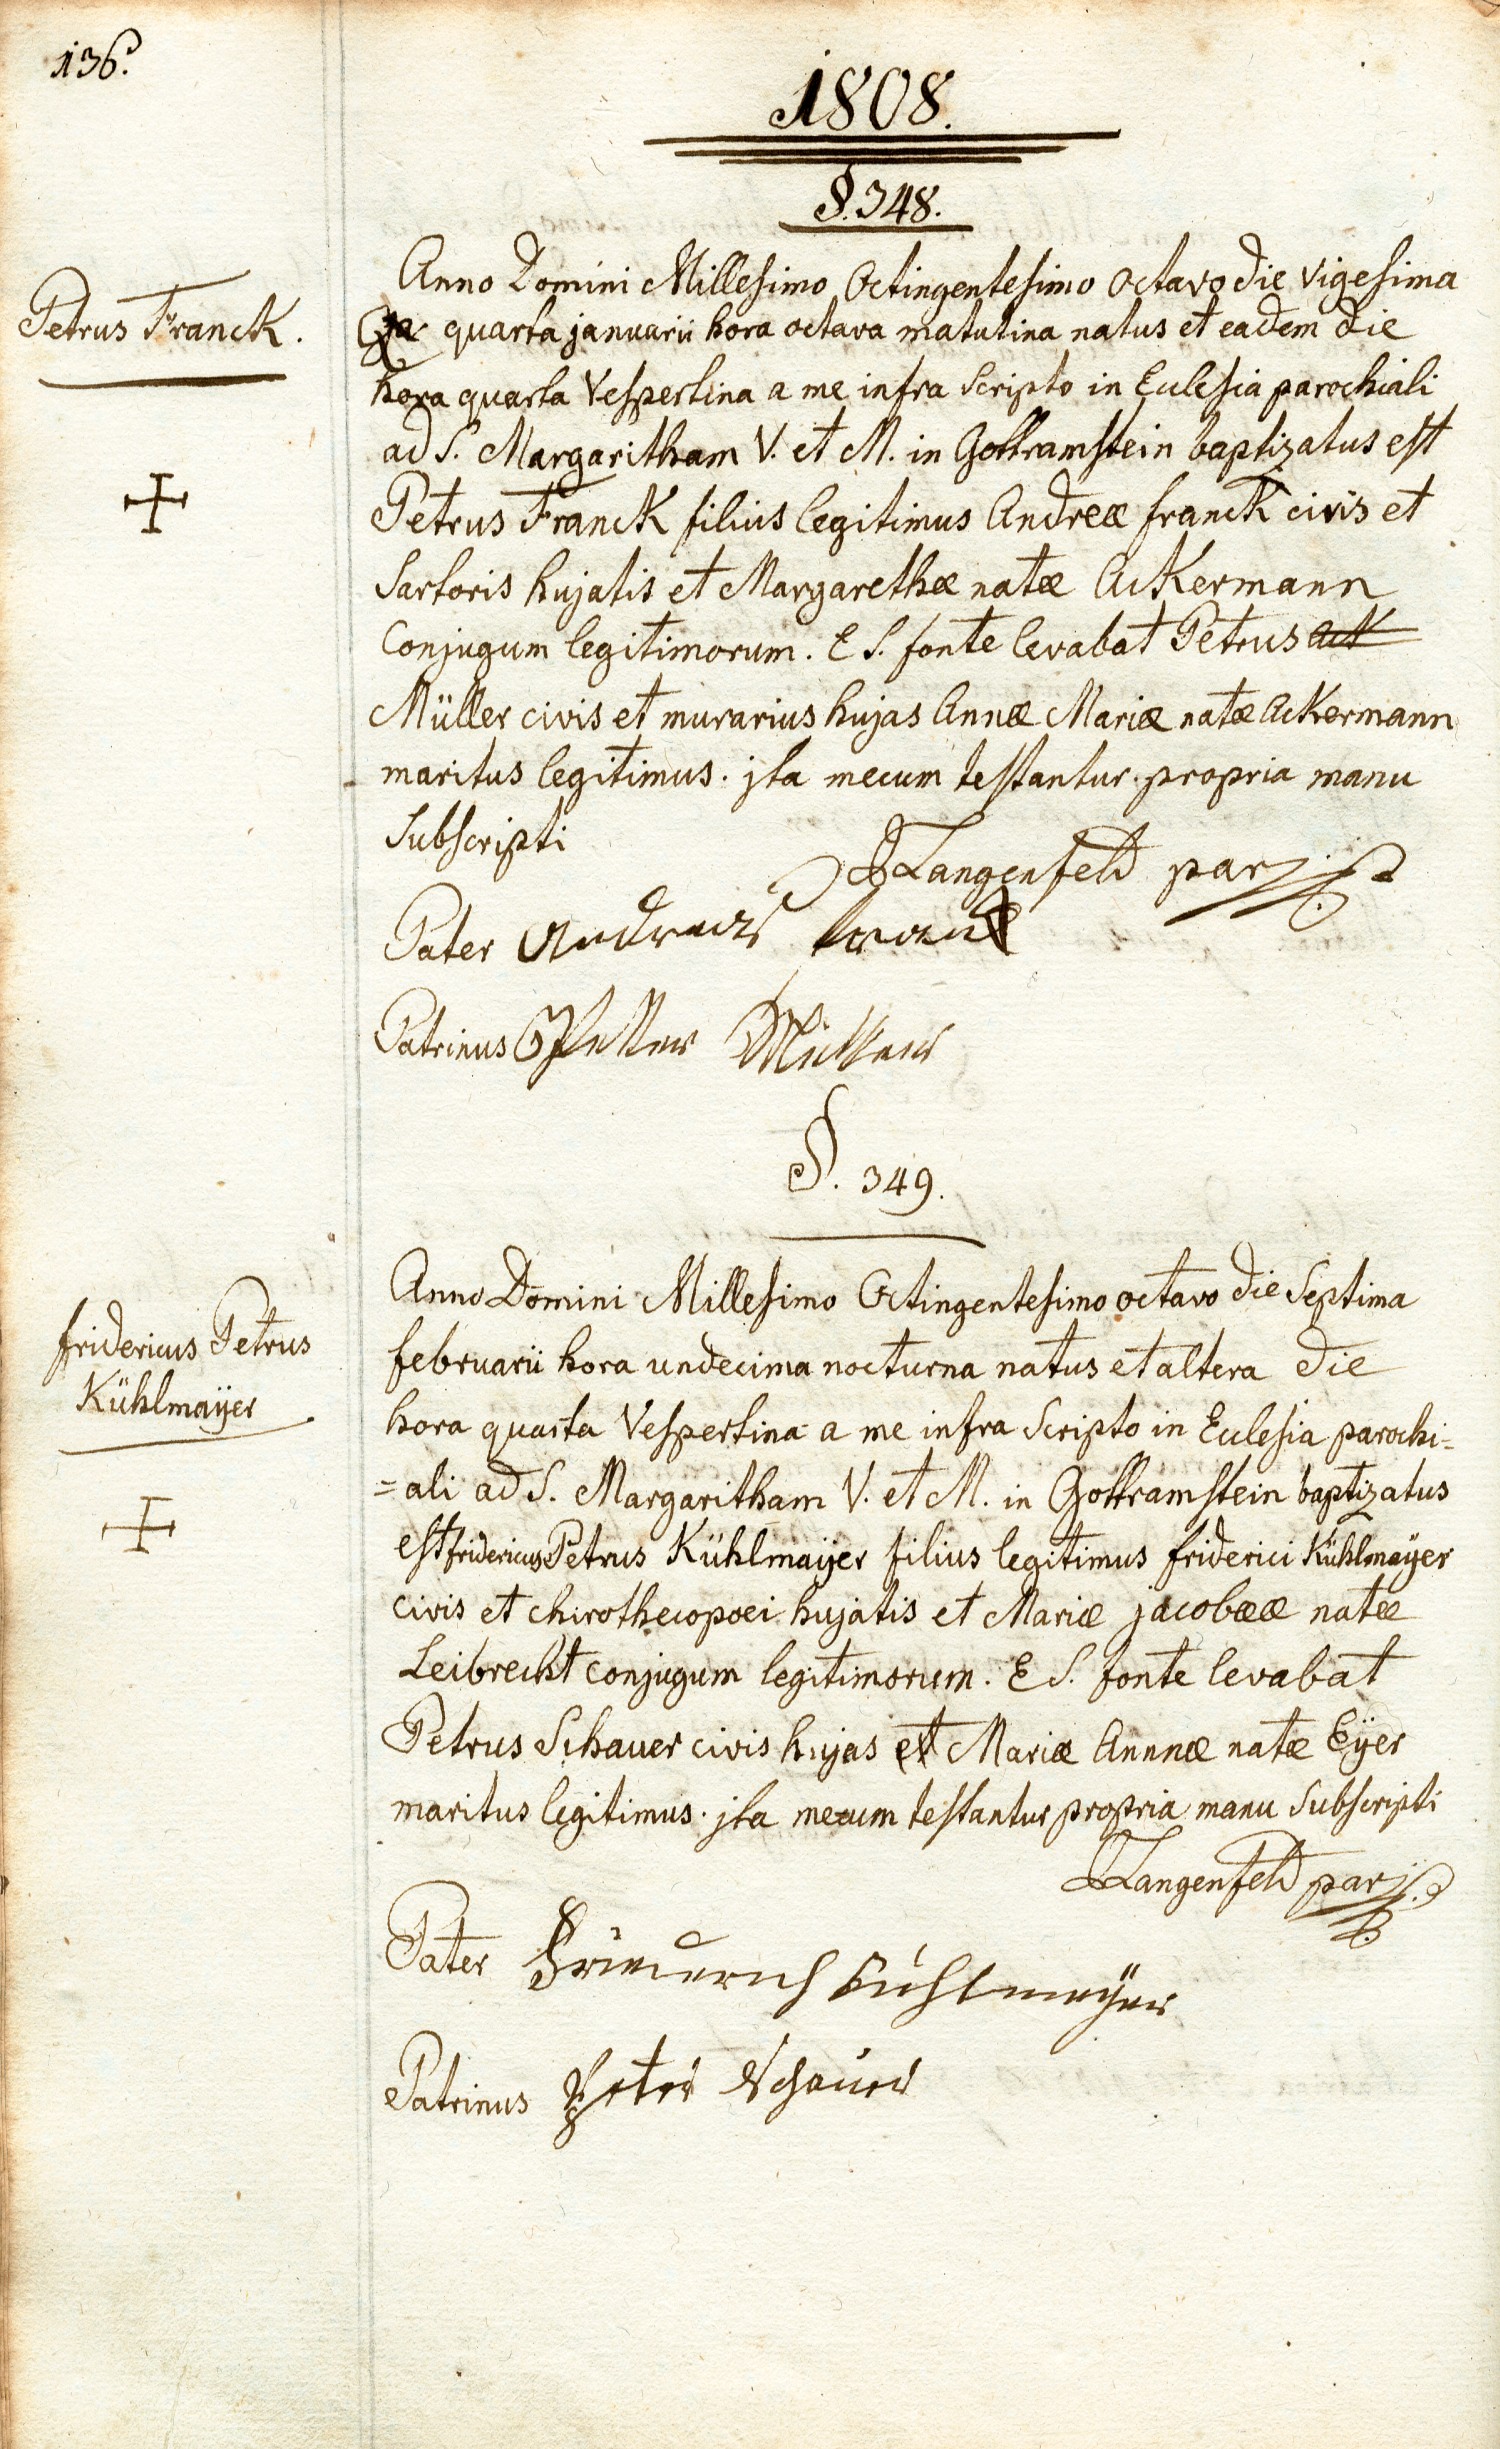 136.
1808.
§. 348.
Petrus Franck.
Anno Domini Millesimo Octingentesimo octavo die vigesima
quarta januarii hora octava matutina natus et eadem die
hora quarta Vespertina a me infra scripto in Eclesia parochiali
ad S. Margaritham V. et M. in Gottramstein baptizatus est
Petrus Franck filius legitimus Andreæ franck civis et
Sartoris hujatis et Margarethæ natæ Ackermann
Conjugum legitimorum. E S. fonte levabat Petrus Ack
Müller civis et murarius hujas Annæ Mariæ natæ Ackermann
maritus legitimus. jta mecum testantur propria manu
Subscripti
Langenfeld par
Pater Andreas franck
Patrinus Petter Müller
§. 349.
fridericus Petrus
Kühlmaÿer
Anno Domini Millesimo Octingentesimo octavo die Septima
februarii hora undecima nocturna natus et altera die
hora quarta Vespertina a me infra scripto in Eclesia parochi=
=ali ad S. Margaritham V. et M. in Gottramstein baptizatus
est fridericus Petrus Kühlmaÿer filius legitimus friderici Kühlmaÿer
civis et chirothecopoei hujatis et Mariæ jacobææ natæ
Leibrecht conjugum legitimorum. E S. fonte levabat
Petrus Schauer civis hujas et Mariæ Annnæ natæ Eÿer
maritus legitimus. jta mecum testantur propria manu Subscripti
Langenfeld par
Pater Friederich Kühlmeÿer
Patrinus Peter Schauer